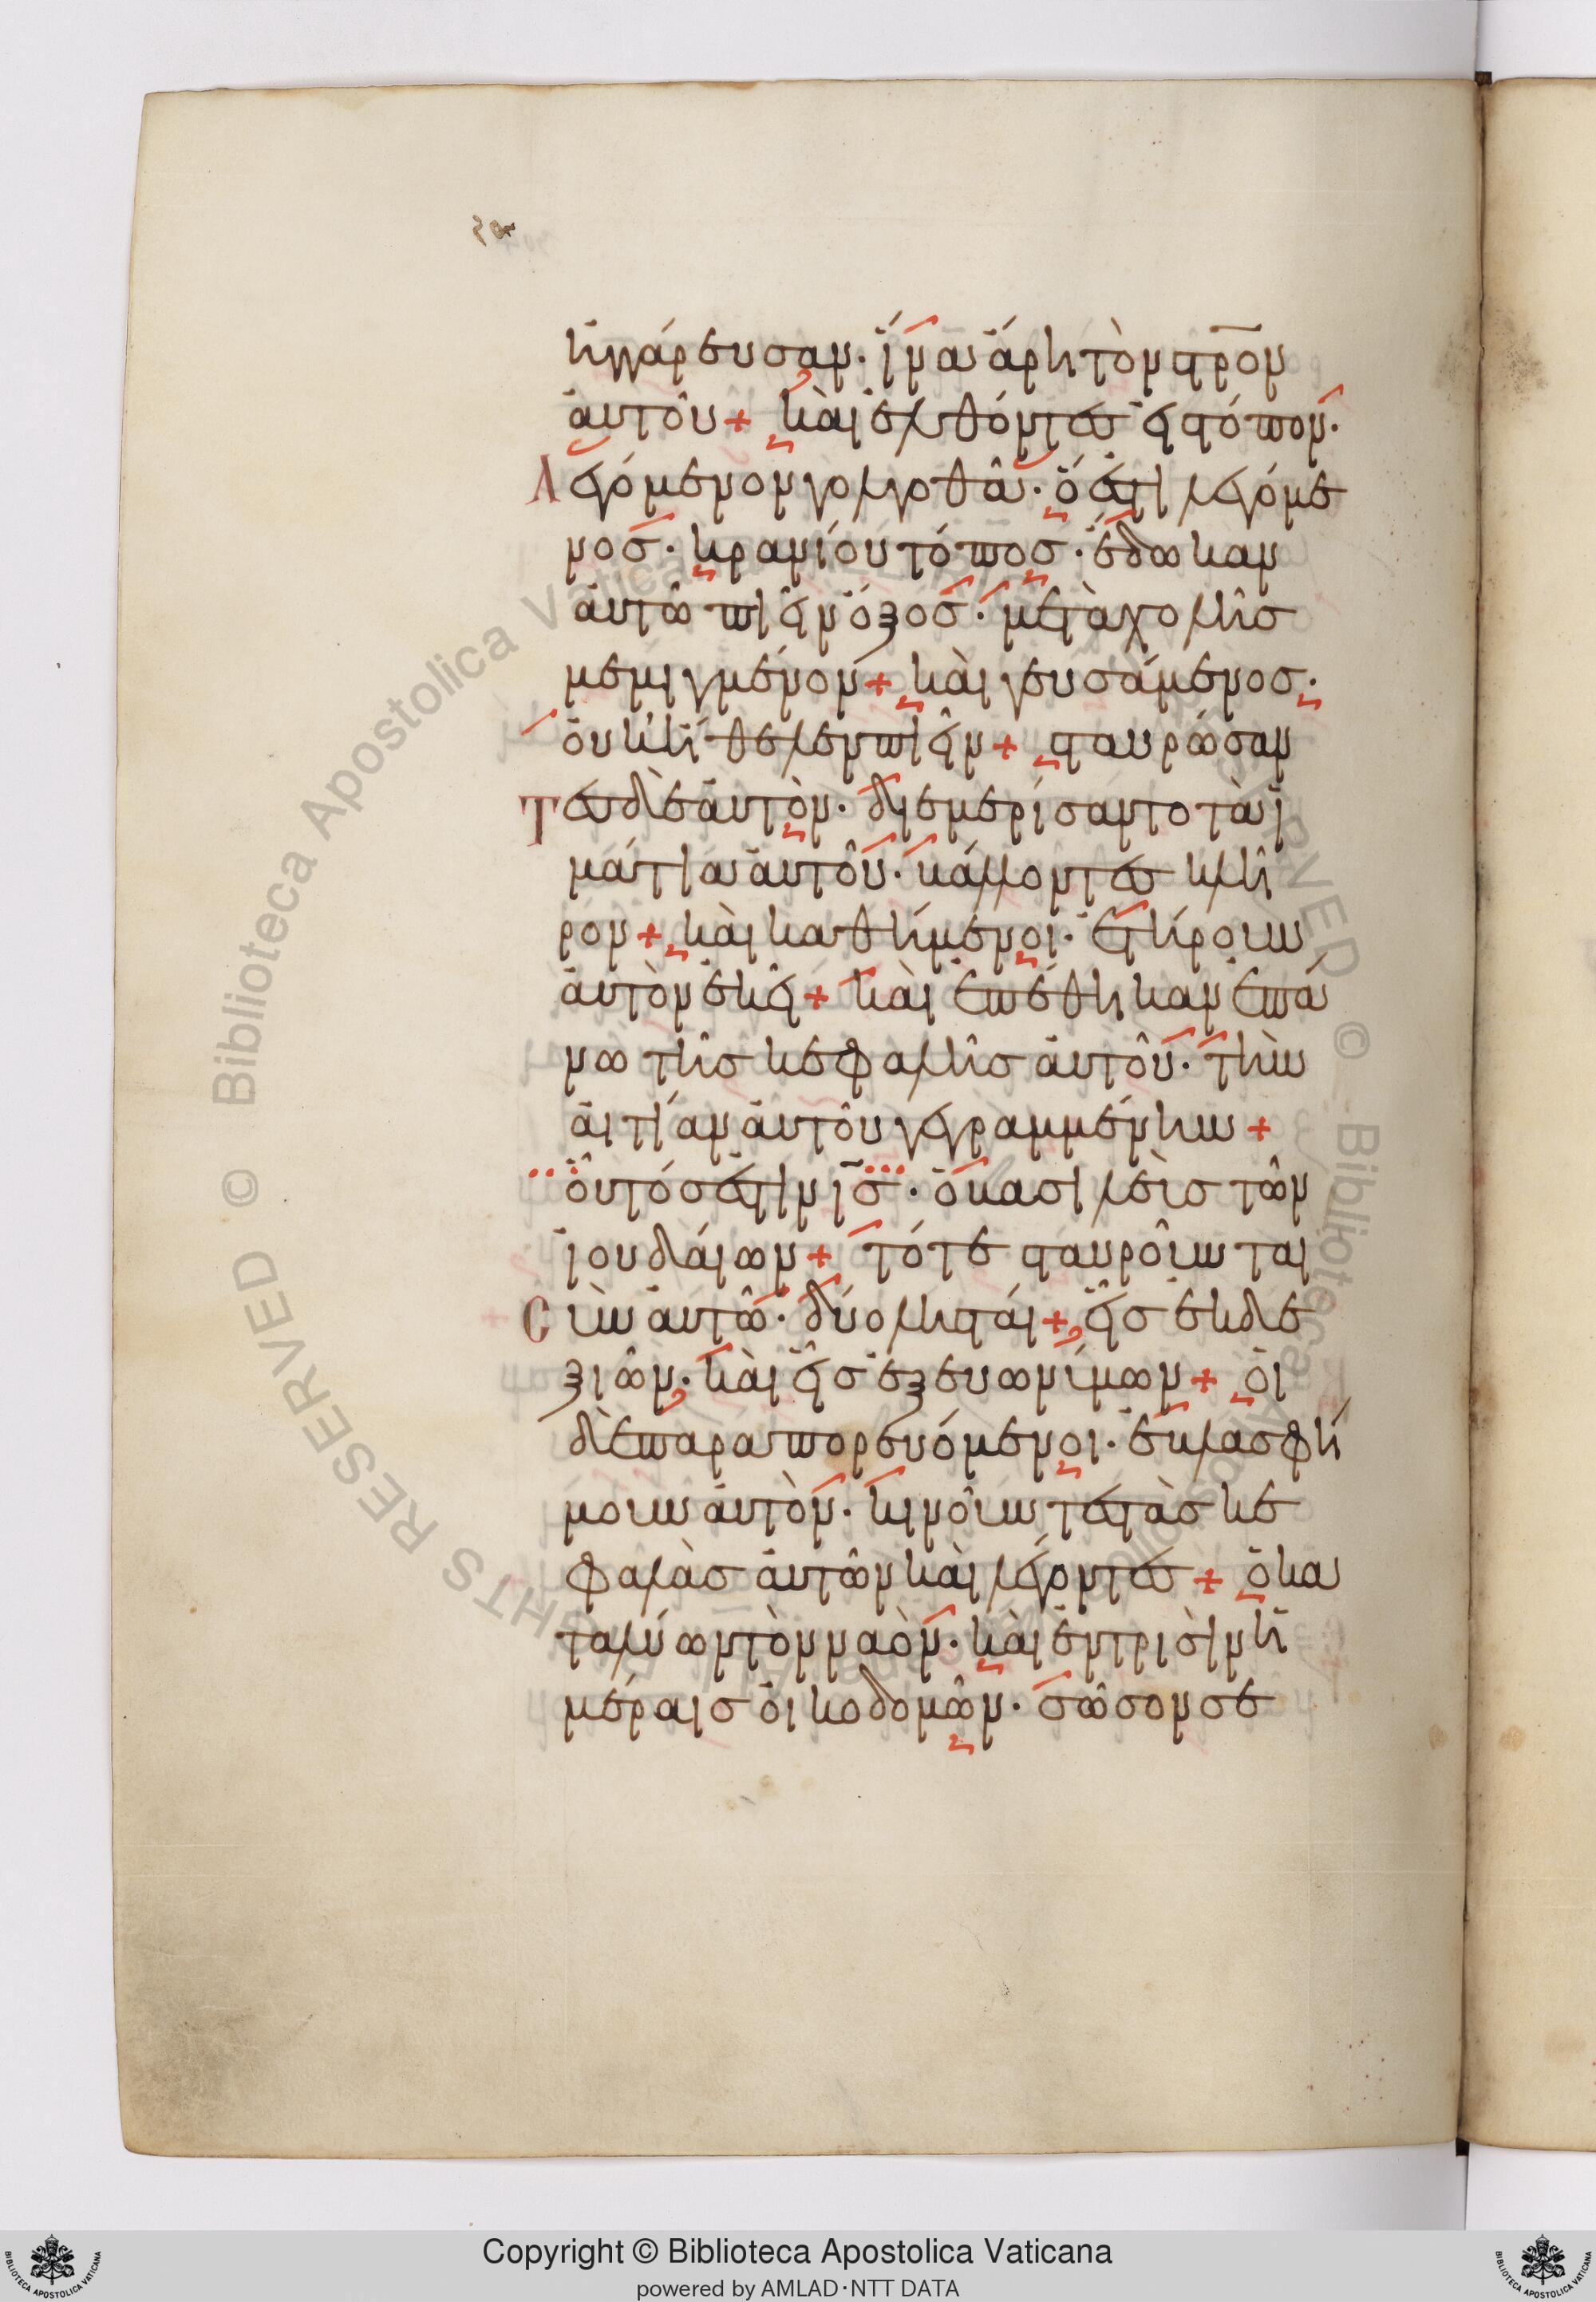 ἠγγάρευσαν· ἵνα ἄρη τὸν στρον
αὐτοῦ + καὶ ἐλθόντες εἰς τόπον·
Λεγόμενον γολγοθᾶ· ὅ ἐστι λεγόμε
νος· κρανίου τόπος· ἔδωκαν
αὐτῶ πιεῖν ὄξος· μετὰ χολῆς
μεμιγμένον + καὶ γευσάμενος·
οὐκ ἤθελεν πιεῖν + σταυρώσαν
Τες δὲ αὐτὸν· διεμερίσαντο τὰ ἱ
μάτια αὐτοῦ· βάλλοντες κλῆ
ρον + καὶ καθήμενοι· ἐτήρουν
αὐτὸν ἐκεῖ + καὶ ἐπέθηκαν ἐπά
νω τῆς κεφαλῆς αὐτοῦ· τὴν
αἰτίαν αὐτοῦ γεγραμμένην +
οὗτός ἐστιν ις· ὁ βασιλεὺς τῶν
ἰουδαίων + τότε σταυροῦνται
Σὺν αὐτῶ· δύο λησταί + εἷς ἐκ δε
ξιῶν· καὶ εἷς ἐξ εὐωνύμων + οἱ
δὲ παραπορευόμενοι· ἐβλασφή
μουν αὐτὸν· κινοῦντες τὰς κε
φαλὰς αὐτῶν καὶ λέγοντες + ὁ κα
ταλύων τὸν ναὸν· καὶ ἐν τρισὶν ἡ
μέραις οἰκοδομῶν· σῶσον σε
Copyright © Biblioteca Apostolica Vaticana
powered by AMLAD·NTT DATA